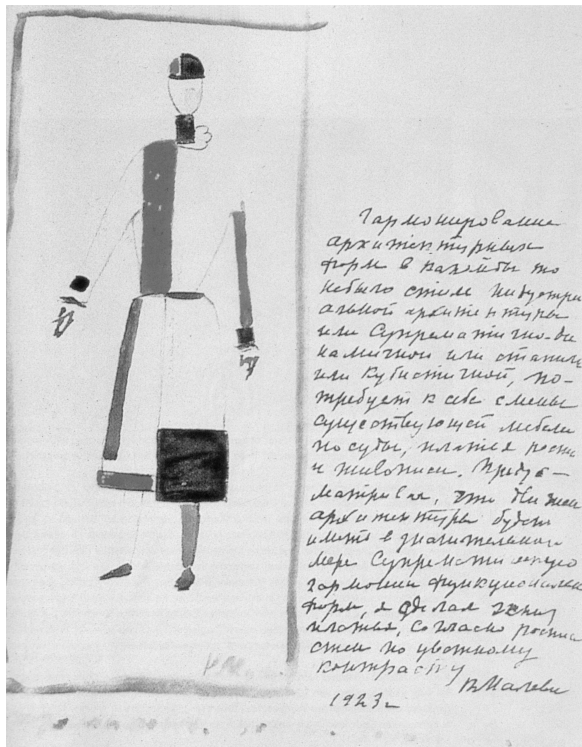 Гармонирование
архитектурных
форм в какой бы то
небыло стиле индустри
альной архитектуры
или Супрематично-ди
намичной или станич
или кубистичной, по-
требует к себе смены
существующей мебели
посуды, платья роспи
и живописи. Предус-
матривая, что движен
архитектуры будет
иметь в значительной
мере Супрематическую
гармонию функциональн
форм, я сделал эскиз
платья, согласно росписи
стен по цветному
контрасту
КМалеви
1923 г
К.М.